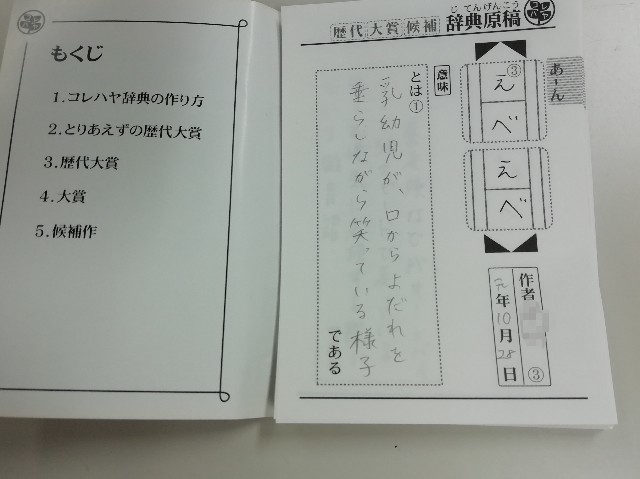 もくじ
1.コレハヤ辞典の作り方
2.とりあえずの歴代大賞
3.歴代大賞
4.大賞
5.候補作
歴代 大賞 候補
じてんげんこう
辞典原稿
コレハヤ
あ〜ん
③
えべ
えべ
意味
とは①
乳幼児が、口からよだれを
垂らしながら笑っている様子
である
作者
③
元年10月28日